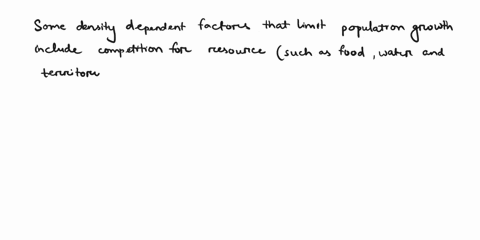 Some density dependent factors that limit population growth
include competition for resource (such as food , water and
territore